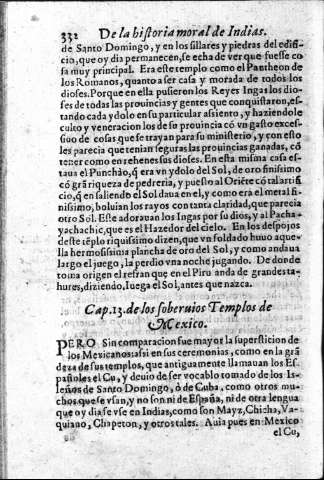 332 De la historia moral de Indias.
de Santo Domingo, y en los sillares y piedras del edifi-
cio, que oy dia permanecen, se echa de ver que fuesse co
sa muy principal. Era este templo como el Pantheon de
los Romanos, quanto a ser casa y morada de todos los
dioses. Porque en ella pusieron los Reyes Ingas los dio-
ses de todas las prouincias y gentes que conquistaron, es-
tando cada ydolo en su particular assiento, y haziendole
culto y veneracion los de su prouincia cõ vn gasto exces-
siuo de cosas que se trayan para su ministerio, y con esto
les parecia que tenian seguras las prouincias ganadas, cõ
tener como en rehenes sus dioses. En esta misma casa es-
taua el Punchào, q̃ era vn ydolo del Sol, de oro finissimo
cõ grã riqueza de pedreria, y puesto al Oriẽte cõ tal artifi
cio, q̃ en saliendo el Sol daua en el, y como era el metal fi-
nissimo, boluian los rayos con tanta claridad, que parecia
otro Sol. Este adorauan los Ingas por su dios, y al Pacha-
yachachic, que es el Hazedor del cielo. En los despojos
deste tẽplo riquissimo dizen, que vn soldado huuo aque-
lla hermosissima plancha de oro del Sol, y como andaua
largo el juego, la perdio vna noche jugando. De donde
toma origen el refran que en el Piru anda de grandes ta-
hures, diziendo, Iuega el Sol, antes que nazca.
Cap. 13. de los soberuios Templos de
Mexico.
PERO Sin comparacion fue mayor la supersticion de
los Mexicanos: assi en sus ceremonias, como en la grã
deza de sus templos, que antiguamente llamauan los Es-
pañoles el Cu, y deuio de ser vocablo tomado de los Is-
leños de Santo Domingo, ò de Cuba, como otros mu-
chos que se vsan, y no son ni de España, ni de otra lengua
que oy dia se vse en Indias, como son Mayz, Chicha, Va-
quiano, Chapeton, y otros tales. Auia pues en Mexico
el Cu,